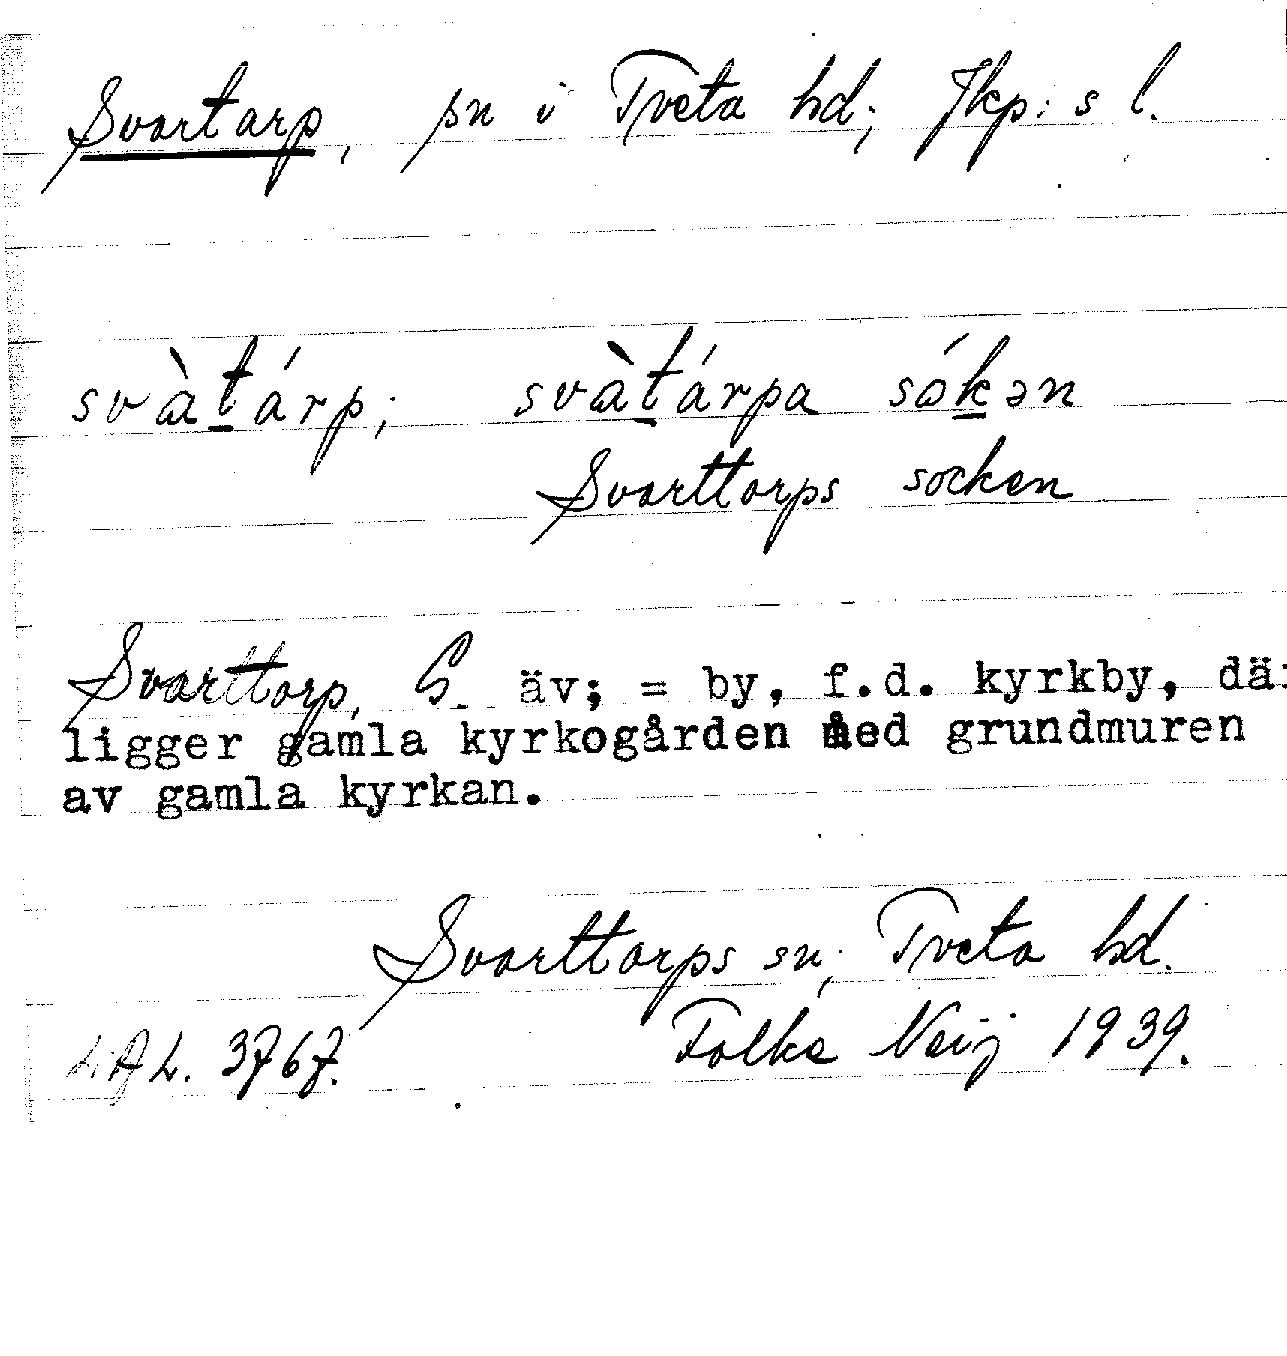 Svartarp, sn i Tveta hd; Jkp:s l.
svàtárp; svàtárpa sókən
Svarttorps socken
Svarttorp, G. äv; = by, f.d. kyrkby, där
ligger gamla kyrkogården med grundmuren
av gamla kyrkan.
Svarttorps sn; Tveta hd.
LAL. 3767. Folke Neij 1939.